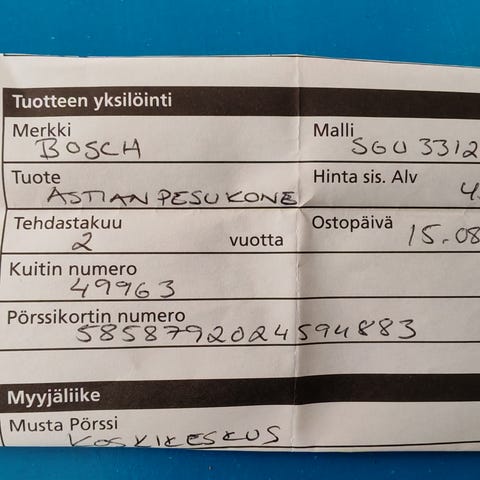 Tuotteen yksilöinti
Merkki Malli
BOSCH SGU 3312
Tuote Hinta sis. Alv
ASTIANPESUKONE 4
Tehdastakuu Ostopäivä
2 vuotta 15.08
Kuitin numero
49963
Pörssikortin numero
5858792024594883
Myyjäliike
Musta Pörssi
KOSKIKESKUS